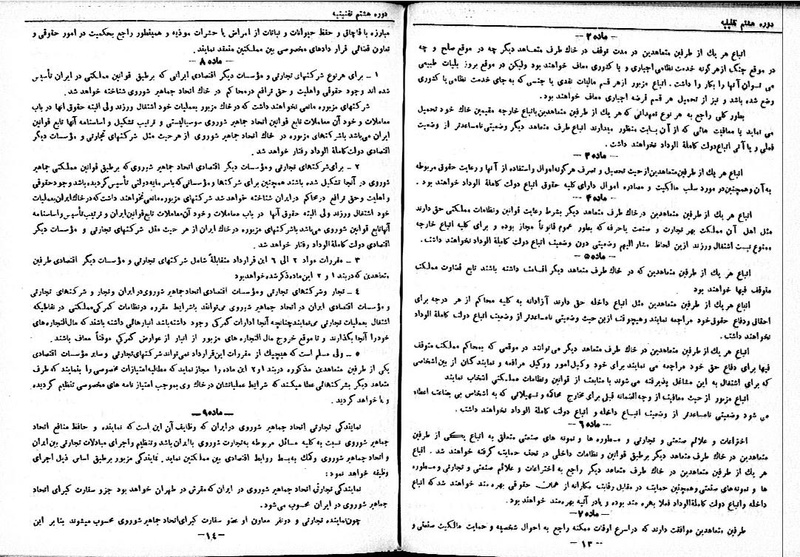 دوره هشتم تقنینیه
— ماده ۲ —
اتباع هر یک از طرفین متعاهدین در مدت توقف در خاک طرف متعاهد دیگر چه در موقع صلح و چه
در موقع جنگ از هرگونه خدمت نظامی اجباری و یا کدوری معاف خواهند بود ولیکن در موقع بروز بلیات طبیعی
می توان آنها را بکار وا داشت. اتباع مزبور از هر قسم مالیات نقدی یا جنسی که به جای خدمت نظامی یا کدوری
وضع شده باشد و نیز از تحمیل هر قسم قرضه اجباری معاف خواهند بود.
بطور کلی راجع به هر نوع تعهداتی که هر یک از طرفین متعاهدین باتباع خارجه مقیمین خاک خود تحمیل
می نماید یا معافیت هائی که از آن بابت منظور میدارند اتباع طرف متعاهد دیگر وضعیتی نامساعدتر از وضعیت
فعلی و یا آتی اتباع دولت کاملة الوداد نخواهند داشت.
— ماده ۳ —
اتباع هر یک از طرفین متعاهدین از حیث تحصیل و تصرف هرگونه اموال و استفاده از آنها و رعایت حقوق مربوطه
به آن و همچنین در مورد سلب مالکیت و مصادره اموال دارای کلیه حقوق اتباع دولت کاملة الوداد خواهند بود.
— ماده ۴ —
اتباع هر یک از طرفین متعاهدین در خاک طرف متعاهد دیگر بشرط رعایت قوانین و نظامات مملکتی حق دارند
مثل اهل آن مملکت بهر تجارت و صنعت یا حرفه که بطور عموم قانوناً مجاز بوده و برای کلیه اتباع خارجه
ممنوع نیست اشتغال ورزند ازین لحاظ مشارالیهم وضعیتی دون وضعیت اتباع دولت کاملة الوداد نخواهند داشت.
— ماده ۵ —
اتباع هر یک از طرفین متعاهدین که در خاک طرف متعاهد دیگر اقامت داشته باشند تابع قضاوت مملکت
متوقف فیها خواهند بود
اتباع هر یک از طرفین متعاهدین مثل اتباع داخله حق دارند آزادانه به کلیه محاکم از هر درجه برای
احقاق و دفاع حقوق خود مراجعه نمایند و هیچوقت ازین حیث وضعیتی نامساعدتر از وضعیت اتباع دولت کاملة الوداد
نخواهند داشت.
اتباع هر یک از طرفین متعاهدین در خاک طرف متعاهد دیگر می توانند در موقعی که بمحاکم مملکت متوقف
فیها برای دفاع حق خود مراجعه می نمایند برای خود وکیل امور و وکیل مرافعه و نمایندگان از بین اشخاصی
که برای اشتغال به این مشاغل پذیرفته می شوند با متابعت از قوانین و نظامات مملکتی انتخاب نمایند
اتباع مزبور از حیث معافیت از وجه الضمانه قبلی برای مخارج محاکمه و تسهیلاتی که به اشخاص بی بضاعت اعطاء
می شود وضعیتی نامساعدتر از وضعیت اتباع داخله و اتباع دولت کاملة الوداد نخواهند داشت.
— ماده ۶ —
اختراعات و علائم صنعتی و تجارتی و مسطوره ها و نمونه های صنعتی متعلق به اتباع یکی از طرفین
متعاهدین در خاک طرف متعاهد دیگر برطبق قوانین و نظامات داخلی در تحت حمایت گرفته خواهند شد. اتباع
هر یک از طرفین متعاهدین در خاک طرف متعاهد دیگر راجع به اختراعات و علائم صنعتی و تجارتی و مسطوره
ها و نمونه های صنعتی و همچنین حمایت در مقابل رقابت مکارانه از همان حقوقی بهره مند خواهند شد که اتباع
داخله و اتباع دولت کاملة الوداد فعلا بهره مند بوده و یا در آتیه بهره مند خواهند بود.
— ماده ۷ —
طرفین متعاهدین موافقت دارند که در اسرع اوقات ممکنه راجع به احوال شخصیه و حمایت مالکیت صنعتی و
— ۱۳ —
دوره هشتم تقنینیه
مبارزه با قاچاق و حفظ حیوانات و نباتات از امراض یا حشرات موذیه و همینطور راجع بحکمیت در امور حقوقی و
تعاون قضائی قرار دادهای مخصوصی بین مملکتین منعقد نمایند.
— ماده ۸ —
۱ — برای هر نوع شرکتهای تجارتی و مؤسسات دیگر اقتصادی ایرانی که برطبق قوانین مملکتی در ایران تأسیس
شده اند وجود حقوقی واهلیت و حق ترافع در محاکم در خاک اتحاد جماهیر شوروی شناخته خواهد شد.
شرکتهای مزبوره مانعی نخواهند داشت که در خاک مزبور بعملیات خود اشتغال ورزند ولی البته حقوق آنها در باب
معاملات و خود آن معاملات تابع قوانین اتحاد جماهیر شوروی سوسیالیستی و ترتیب تشکیل و اساسنامه آنها تابع قوانین
ایران می باشد باشرکتهای مزبوره در خاک اتحاد جماهیر شوروی از هر حیث مثل شرکتهای تجارتی و مؤسسات دیگر
اقتصادی دولت کاملة الوداد رفتار خواهد شد.
۲ — برای شرکتهای تجارتی و مؤسسات دیگر اقتصادی اتحاد جماهیر شوروی که برطبق قوانین مملکتی جماهیر
شوروی در آنجا تشکیل شده باشند همچنین برای شرکتها و مؤسساتی که باسرمایه دولتی تأسیس گردیده باشد وجود حقوقی
واهلیت و حق ترافع در محاکم در ایران شناخته خواهد شد شرکتهای مزبوره مانعی نخواهند داشت که در خاک ایران بعملیات
خود اشتغال ورزند ولی البته حقوق آنها در باب معاملات و خود آن معاملات تابع قوانین ایران و ترتیب تأسیس و اساسنامه
آنها تابع قوانین شوروی می باشد باشرکتهای مزبوره در خاک ایران از هر حیث مثل شرکتهای تجارتی و مؤسسات دیگر
اقتصادی دولت کاملة الوداد رفتار خواهد شد.
۳ — مقررات مواد ۲ الی ۶ این قرارداد متقابلاً شامل شرکتهای تجارتی و مؤسسات دیگر اقتصادی طرفین
متعاهدین که در بند ۱ و ۲ این ماده ذکر شده خواهد بود
۴ — تجار و شرکتهای تجارتی و مؤسسات اقتصادی اتحاد جماهیر شوروی در ایران و تجار و شرکتهای تجارتی
و مؤسسات اقتصادی ایران در اتحاد جماهیر شوروی می توانند بشرایط مقرره در نظامات گمرکی مملکتی در نقاطیکه
اشتغال بعملیات تجارتی می نمایند چنانچه آنجا ادارات گمرکی وجود داشته باشد انبارهائی داشته باشند که مال التجاره های
خود را آنجا بگذارند و تا موقع خروج مال التجاره های مزبور از انبار از عوارض گمرکی موقتاً معاف باشند.
۵ — ولی مسلم است که هیچیک از مقررات این قرارداد نمی تواند شرکتهای تجارتی و سایر مؤسسات اقتصادی
یکی از طرفین متعاهدین مذکوره در بند ۱ و ۲ این ماده را مجاز نماید که مطالبه امتیازات خصوصی را بنمایند که طرف
متعاهد دیگر بشرکتهائی عطا میکند که شرایط عملیاتشان در خاک وی بموجب امتیاز نامه های مخصوصی تنظیم گردیده
و یا خواهد گردید.
— ماده ۹ —
نمایندگی تجارتی اتحاد جماهیر شوروی در ایران که وظایف آن این است که نماینده و حافظ منافع اتحاد
جماهیر شوروی نسبت به کلیه مسائل مربوطه به تجارت شوروی با ایران باشد و تنظیم و اجرای مبادلات تجارتی بین ایران
و اتحاد جماهیر شوروی و کمک به بسط روابط اقتصادی بین مملکتین نماید. نمایندگی مزبور برطبق اساس ذیل اجرای
وظیفه خواهد نمود:
نمایندگی تجارتی اتحاد جماهیر شوروی در ایران که مقرش در طهران خواهد بود جزو سفارت کبرای اتحاد
جماهیر شوروی در ایران محسوب می شود.
چون نماینده تجارتی و دو نفر معاون او عضو سفارت کبرای اتحاد جماهیر شوروی محسوب میشوند بنابر این
— ۱۴ —